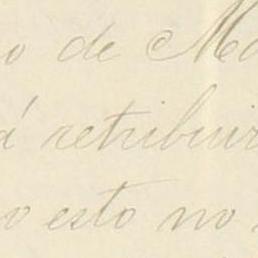 o de Ma
á retribuir
o esto no